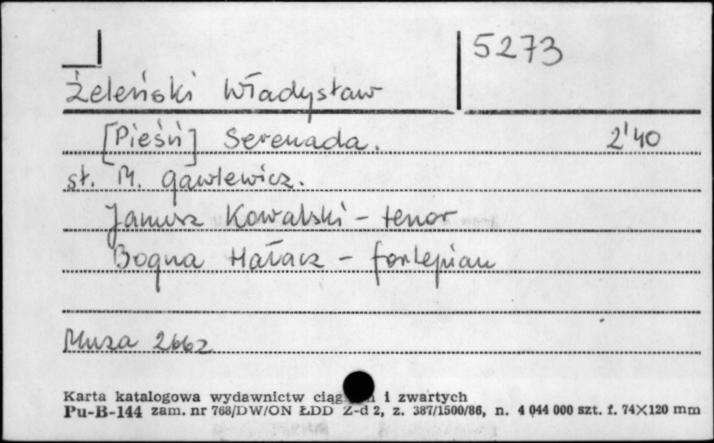 5273
Żeleński Władysław
[Pieśń] Serenada. 2'40
sł. M. Gawlewicz.
Janusz Kowalski - tenor
Bogna Hałacz - fortepian
Muza 2662
Karta katalogowa wydawnictw ciąg i zwartych
Pu-B-144 zam. nr 768/DW/ON ŁDD Z-d 2, z. 387/1500/86, n. 4 044 000 szt. f. 74X120 mm